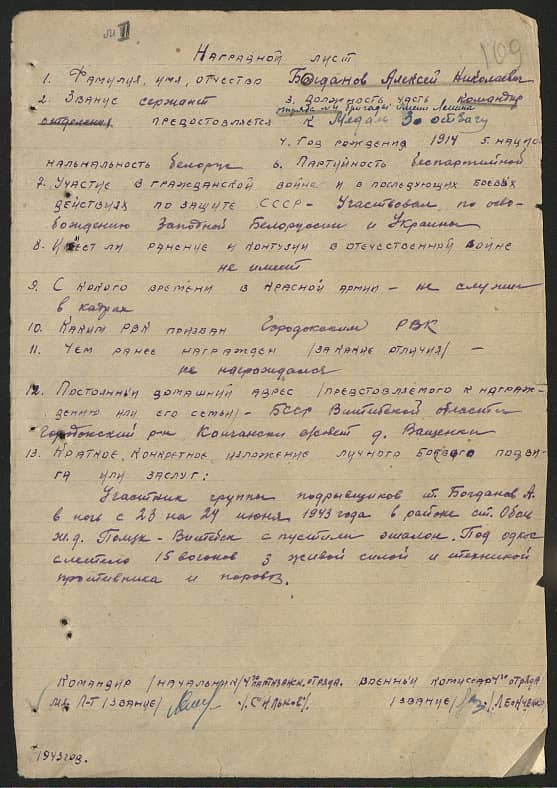 109
Наградной лист
1. Фамилия, имя, отчество Богданов Алексей Николаевич
2. Звание сержант 3. Должность, часть командир
отделения отряда №4 бригады имени Ленина
предостовляется к Медали За отвагу
4. Год рождения 1914 5. нацио
нальнальность белорус 6. Партийность беспартийной
7. Участие в гражданской войне и в последующих боевых
действиях по защите СССР - Участвовал по осво-
бождению Западной Белоруссии и Украины
8. Имеет ли ранение и контузии в отечественной войне
не имеет
9. С какого времени в Красной армии - не служил
в кадрах
10. Каким РВК призван Городокским РВК
11. Чем ранее награжден /за какие отличия/ -
не награждался
12. Постоянный домашний адрес /представляемого к награж-
дению или его семьи/ - БССР Витебской области
Городокский р-н с/совет д. Ващенки
13. Краткое, конкретное изложение личного боевого подви-
га или заслуг:
Участник группы подрывщиков т. Богданов А.
в ночь с 23 на 24 июня 1943 года в районе ст. Оболь
ж.д. Полоцк - Витебск спустили эшалон. Под откос
слетело 15 вагонов з живой силой и техникой
противника и паровоз.
Командир /начальник/ 4го партизанск. отряда. Военный комиссар 4го отряда
мл. л-т /звание/ /Сильнов/. /звание/ /Леонченко
1943 год.